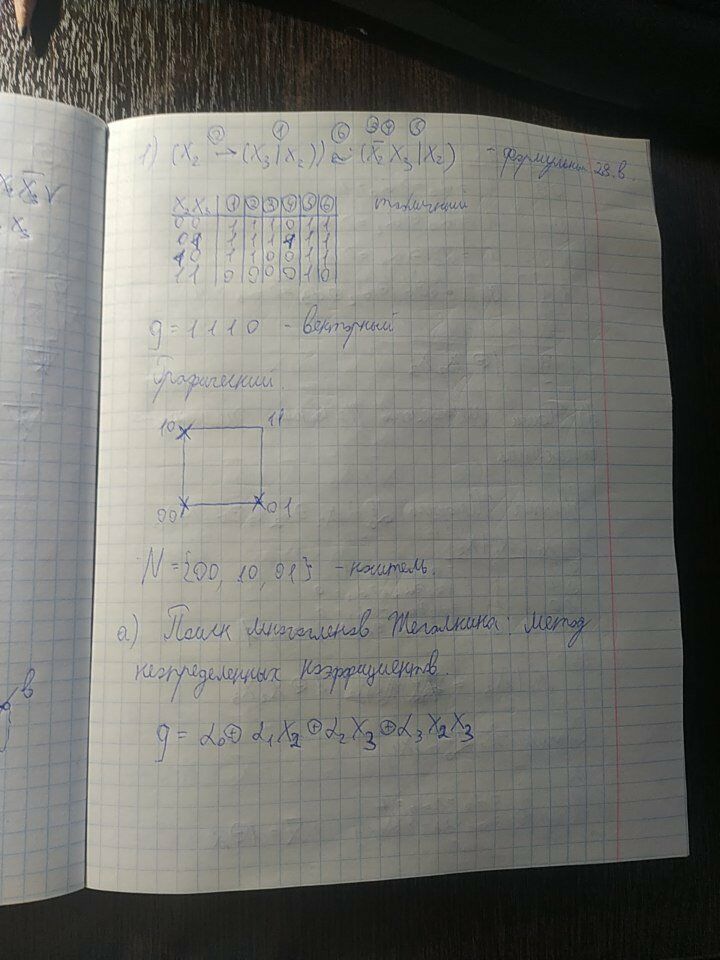 х₃ х̄₃ ∨
х₃
в
② ① ⑥ ③④ ⑤
1) (X₂ → (X₃|X₂)) ~ (X̄₂X₃|X₂) - формульный 28.в.
X₂X₃ | ① | ② | ③ | ④ | ⑤ | ⑥ табличный
0 0 | 1 | 1 | 1 | 0 | 1 | 1
0 1 | 1 | 1 | 1 | 1 | 1 | 1
1 0 | 1 | 1 | 0 | 0 | 1 | 1
1 1 | 0 | 0 | 0 | 0 | 1 | 0
g = 1 1 1 0 - векторный
Графический.
10 11
00 01
N = {00, 10, 01} - носитель.
а) Поиск многочленов Жегалкина: метод
неопределенных коэффициентов.
g = α₀ ⊕ α₁X₂ ⊕ α₂X₃ ⊕ α₃X₂X₃